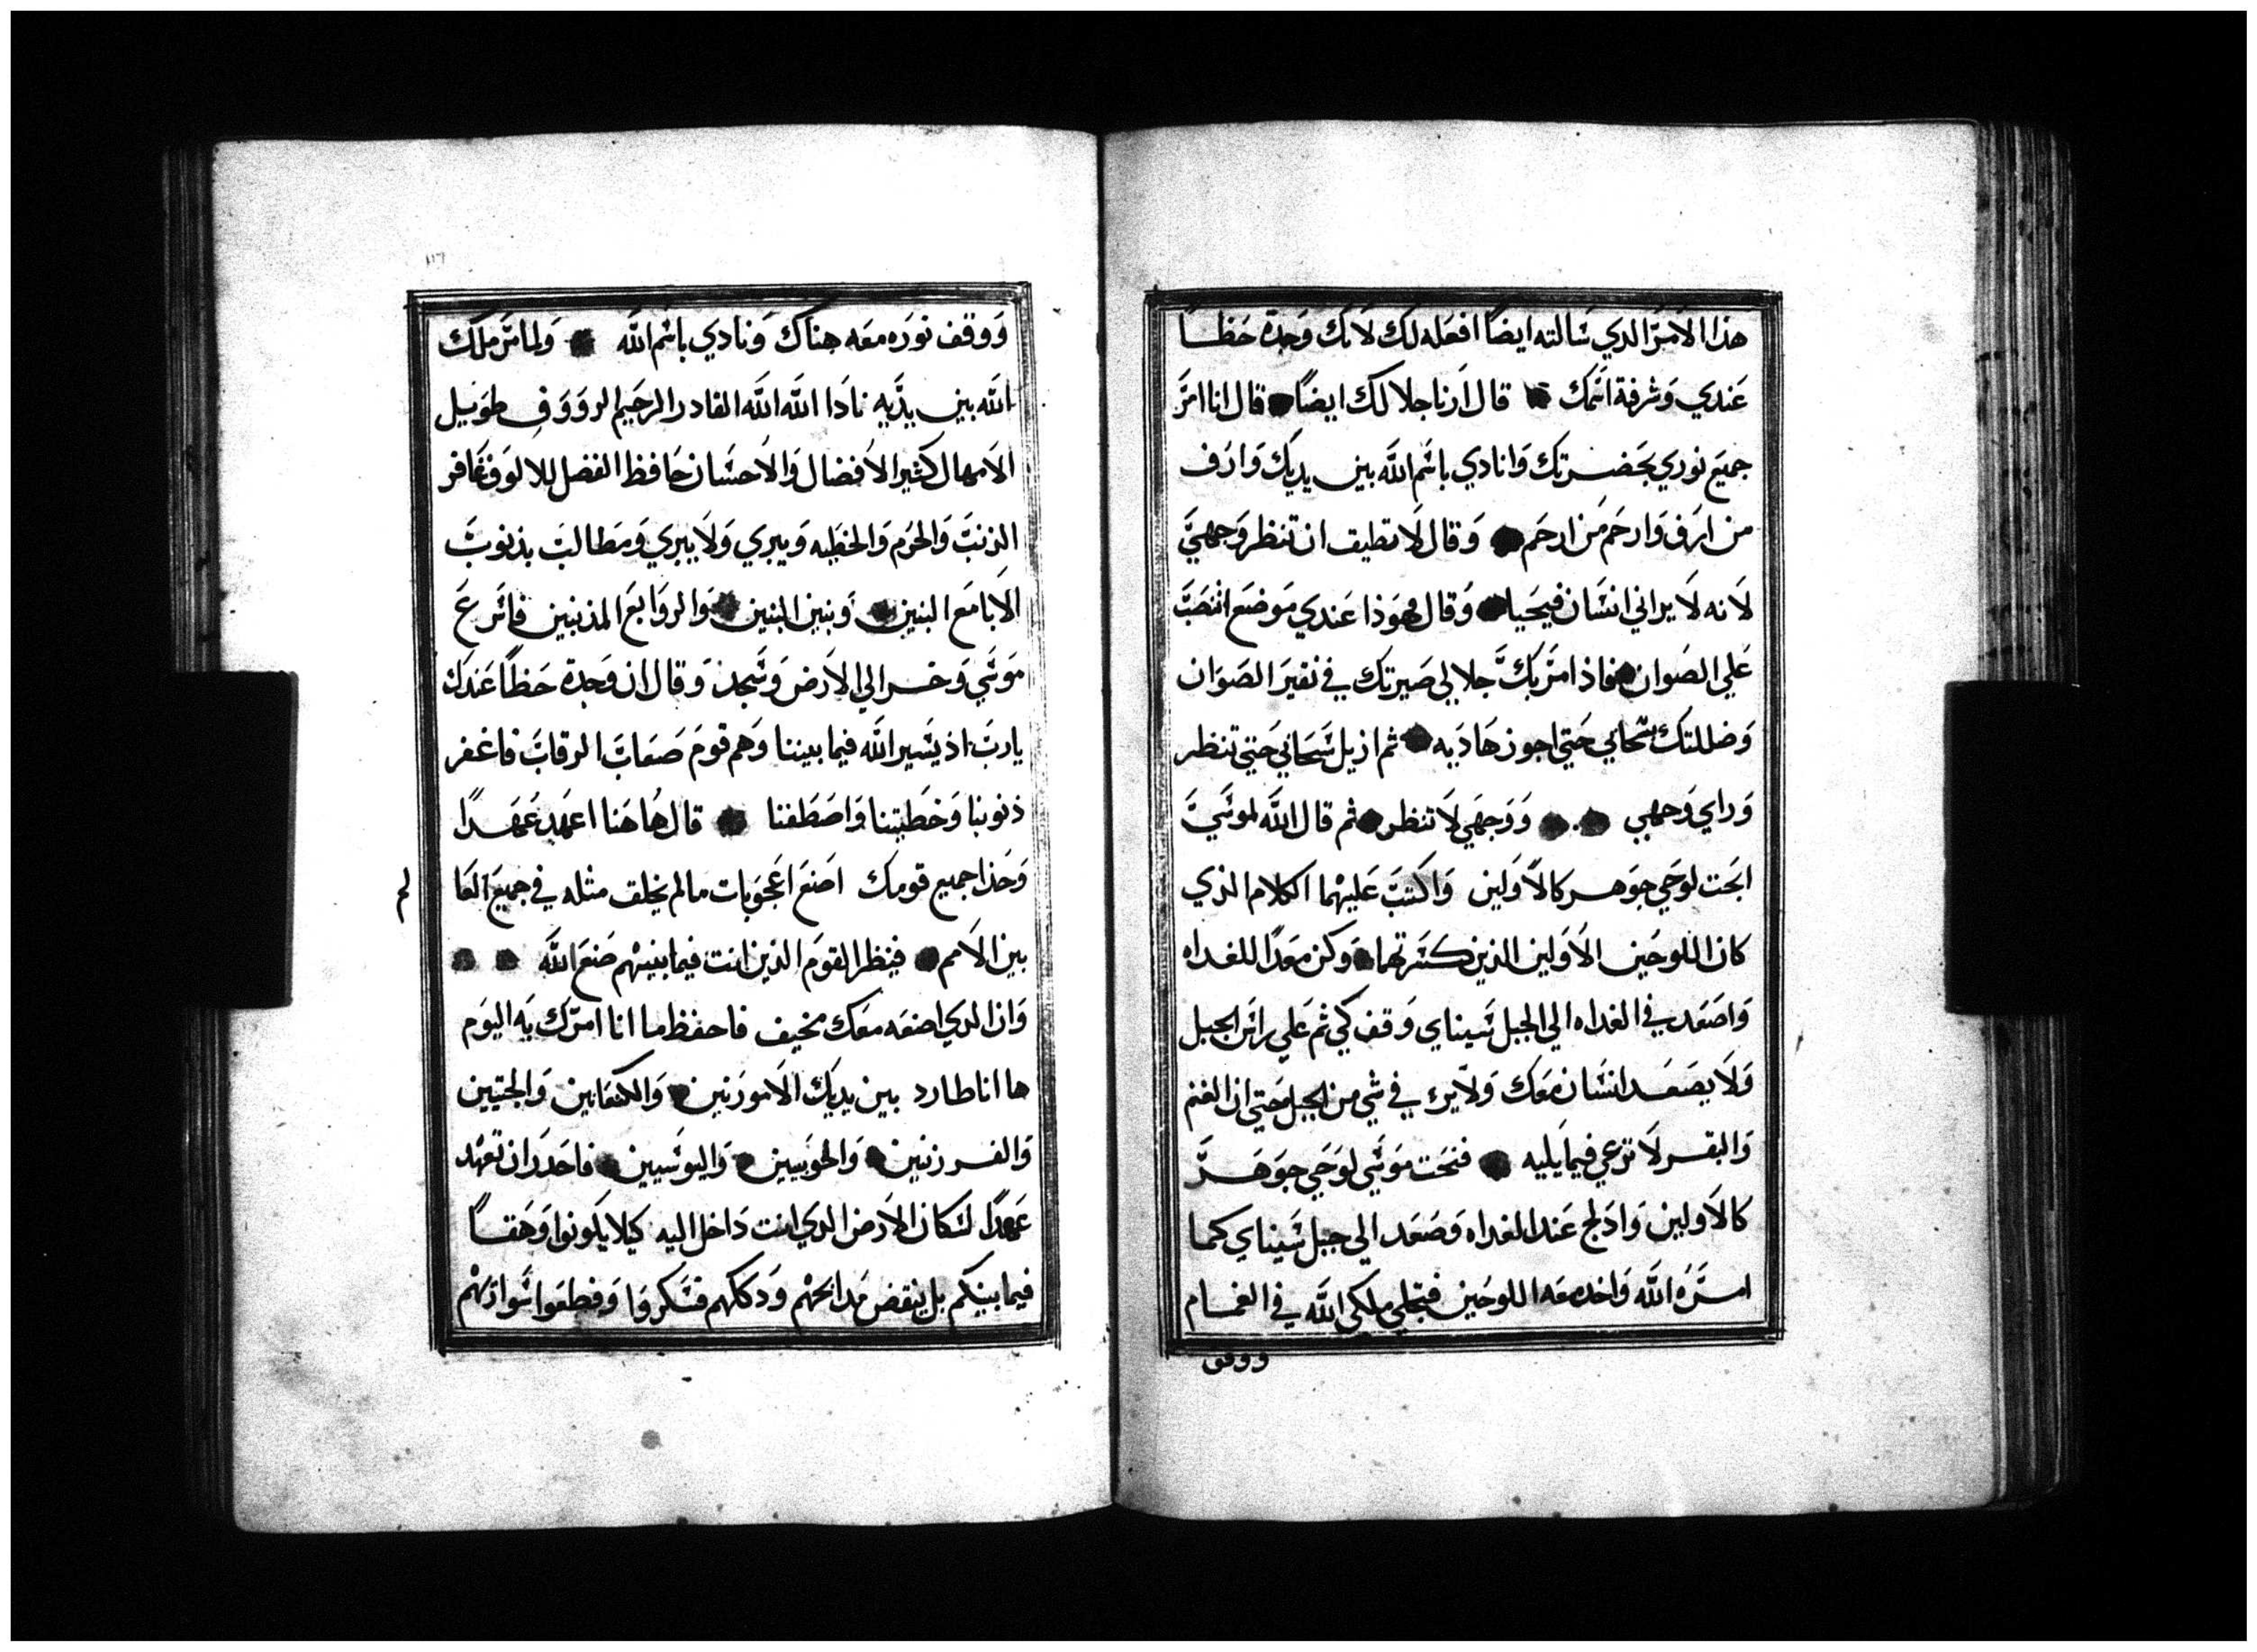 هذا الامر الدي سالته ايضا افعله لك لانك وجدة حظا
عندي وشرفة اسمك قال ارنا جلالك ايضا قال انا امر
جميع نوري بحضرتك وانادي باسم الله بين يديك وارف
من ارف وارحم من ارحم وقال لا تطيق ان تنظر وجهي
لانه لا يراني انسان فيحيا وقال هوذا عندي موضع انتصب
علي الصوان فاذا مر بك جلالي صيرتك في نقير الصوان
وضللتك بسحابي حتي اجوز هاديه ثم ازيل سحابي حتي تنظر
وراي وجهي ووجهي لا تنظر ثم قال الله لموسي
انحت لوحي جوهر كالاولين واكتب عليهما الكلام الذي
كان اللوحين الاولين الذين كسرتهما وكن معدا للغداه
واصعد في الغداه الي الجبل سيناي وقف لي ثم علي راس الجبل
ولا يصعد انسان معك ولا يرء في شي من الجبل حتي ان الغنم
والبقر لا ترعي فيما يليه فنحت موسي لوحي جوهر
كالاولين وادلج عند الغداه وصعد الي جبل سيناي كما
امره الله واخد معه اللوحين فتجلي ملكي الله في الغمام
ووقف
ووقف نوره معه هناك ونادي باسم الله ولما مر ملك
الله بين يديه نادا الله الله القادر الرحيم الرووف طويل
الامهال كثير الافضال والاحسان حافظ الفضل للالوف غافر
الذنب والجرم والخطيه ويبري ولا يبري ومطالب بذنوب
الابا مع البنين وبنين البنين والروابع المذنبين فاسرع
موسي وخر الي الارض وسجد وقال ان وجدة حظا عندك
يارب اذ يسير الله فيما بيننا وهم قوم صعاب الرقاب فاغفر
ذنوبنا وخطيتنا واصطفنا قال هاهنا اعهد عهدا
وحذا جميع قومك اصنع اعجوبات مالم يخلق مثله في جميع العا
لم
بين الامم فينظر القوم الذين انت فيما بينهم صنع الله
وان الدي اصنعه معك مخيف فاحفظ ما انا امرك به اليوم
ها انا طارد بين يديك الامورنين والكنعانين والحتيين
والفرزنين والحويين واليوسيين فاحدر ان تعهد
عهدا لسكان الارض الدي انت داخل اليه كيلا يكونوا وهقا
فيما بينكم بل ينقض مدابحهم ودكاكهم فتكروا وقطعوا سواريهم